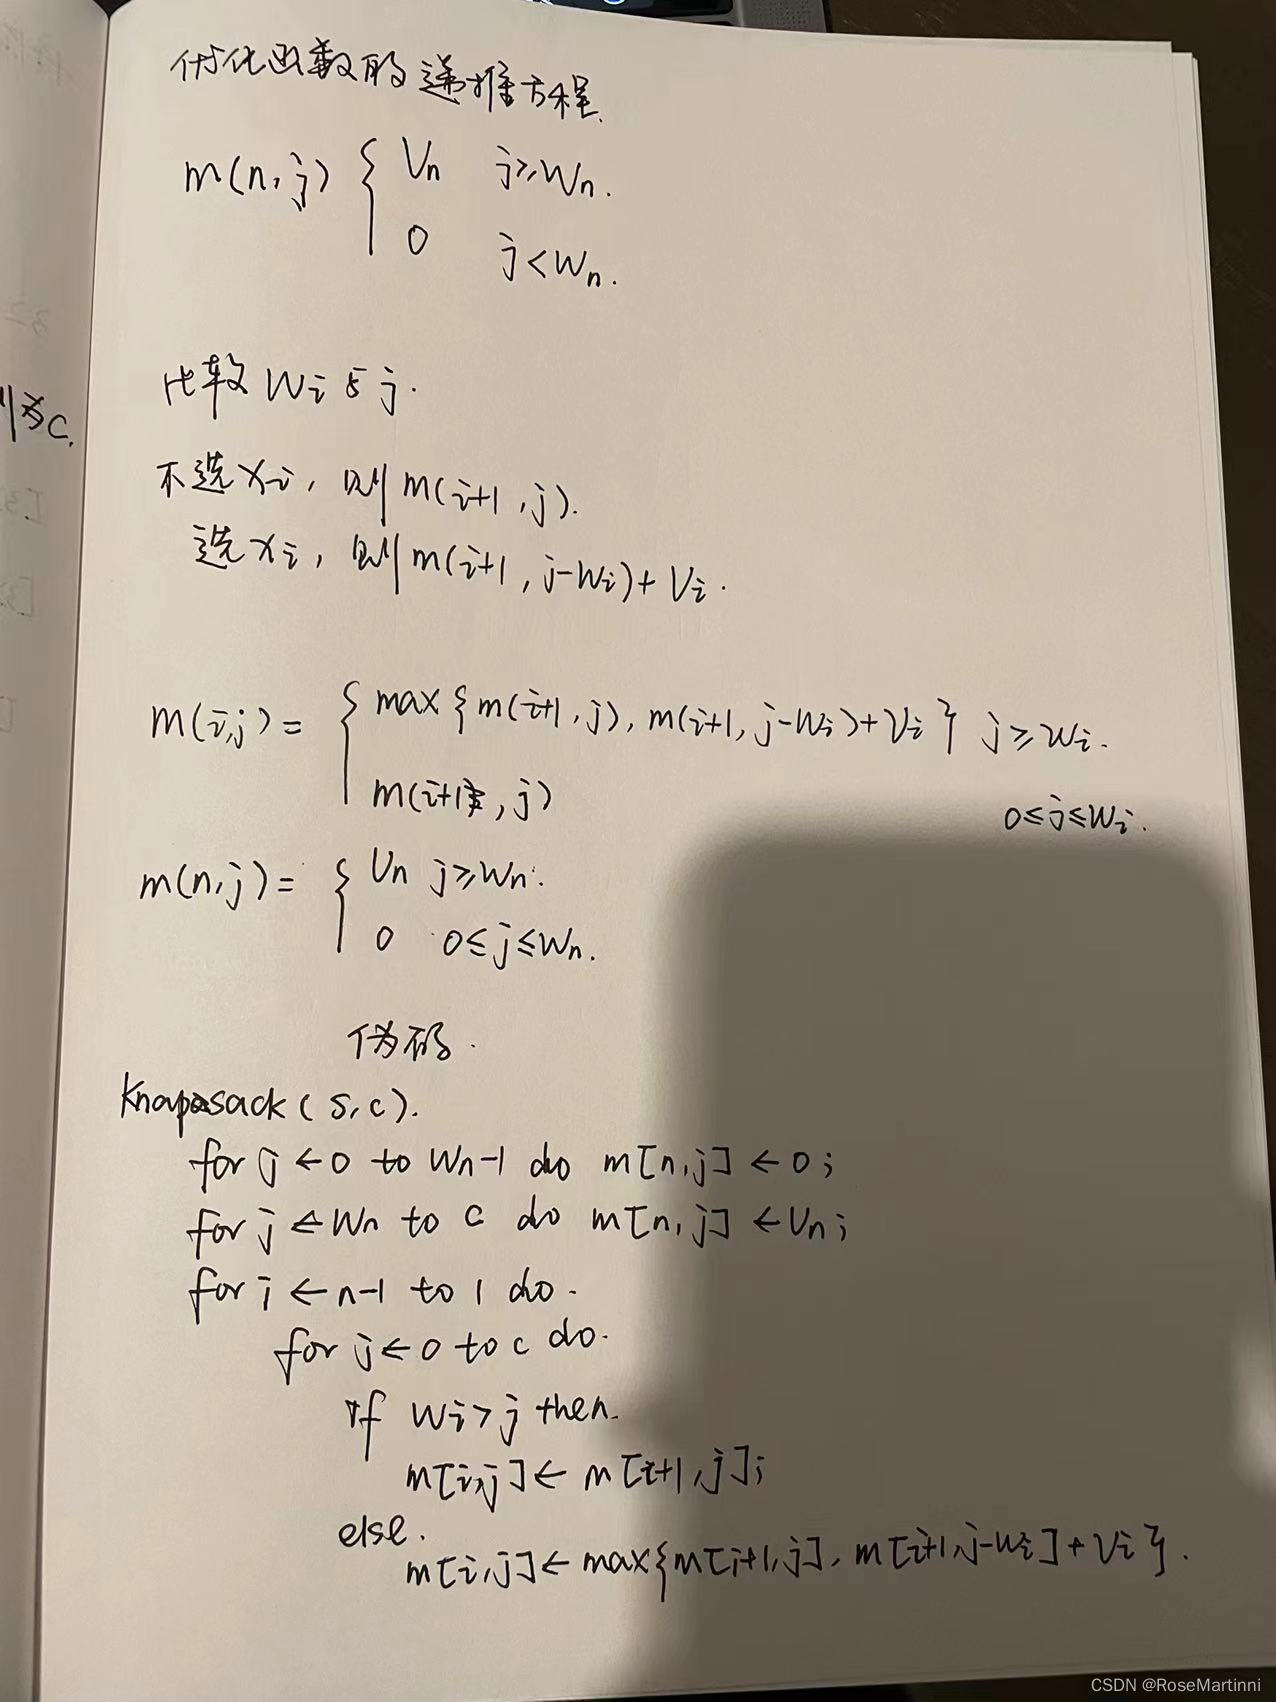 优化函数的递推方程.
m(n,j) { Vn j≥Wn.
0 j<Wn.
比较 Wi 与 j.
不选 xi, 则 m(i+1, j).
选 xi, 则 m(i+1, j-Wi)+Vi.
m(i,j) = { max{m(i+1, j), m(i+1, j-Wi)+Vi} j≥Wi.
m(i+1, j) 0≤j≤Wi.
m(n,j) = { Vn j≥Wn.
0 0≤j≤Wn.
伪码.
Knapasack(S,C).
for j ← 0 to Wn-1 do m[n,j] ← 0;
for j ← Wn to C do m[n,j] ← Vn;
for i ← n-1 to 1 do.
for j ← 0 to c do.
if Wi > j then.
m[i,j] ← m[i+1,j];
else.
m[i,j] ← max{m[i+1,j], m[i+1,j-Wi]+Vi}.
为C.
CSDN @RoseMartinni